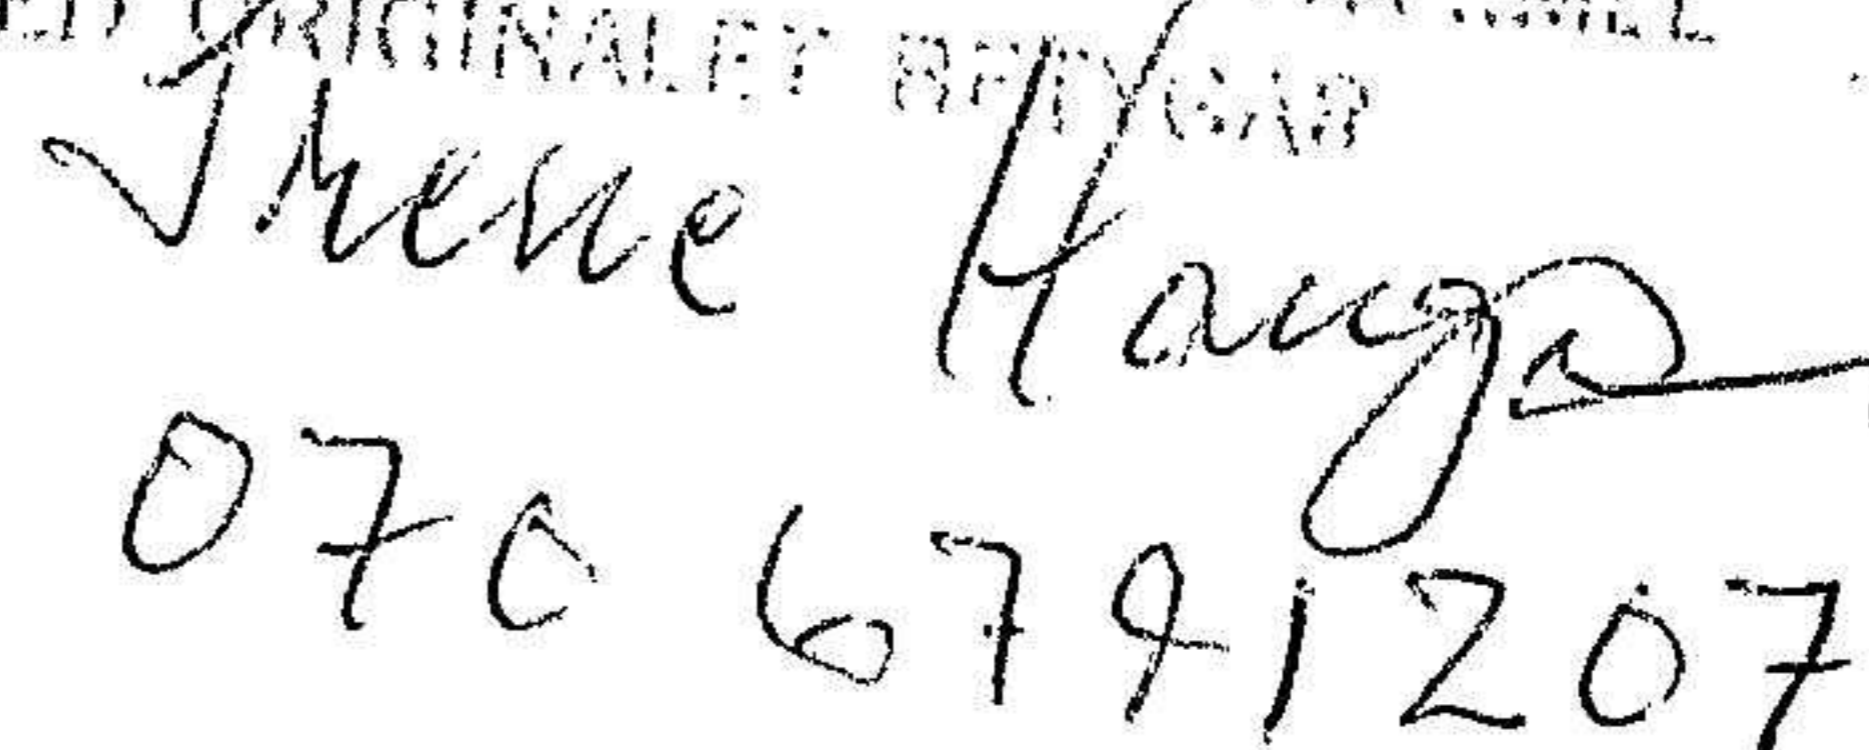 ORIGINALET BETYGAR
Irene Hauga
070 6791207